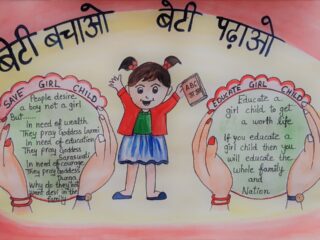 बेटी बचाओ बेटी पढ़ाओ
SAVE GIRL CHILD
People desire
a boy not a girl
But......
In need of wealth
They pray Goddess Laxmi
In need of education
They pray Goddess
Saraswati
In need of courage
They pray Goddess
Durga
Why do they not
want devi in the
family
ABC
EDUCATE GIRL CHILD
Educate a
girl child to get
a worth life.
If you educate a
girl child then you
will educate the
whole family
and
Nation